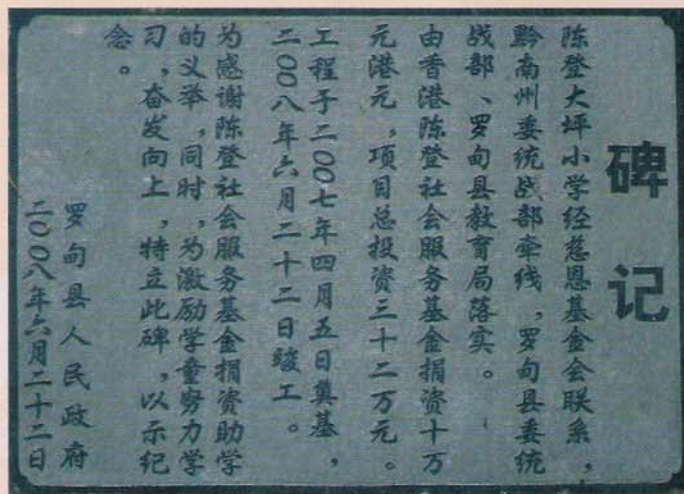 碑记
陈登大坪小学经慈恩基金会联系，
黔南州委统战部牵线，罗甸县委统
战部、罗甸县教育局落实。
由香港陈登社会服务基金捐资十万
元港元，项目总投资三十二万元。
工程于二〇〇七年四月五日奠基，
二〇〇八年六月二十二日竣工。
为感谢陈登社会服务基金捐资助学
的义举，同时，为激励学童努力学
习，奋发向上，特立此碑，以示纪
念。
罗甸县人民政府
二〇〇八年六月二十二日